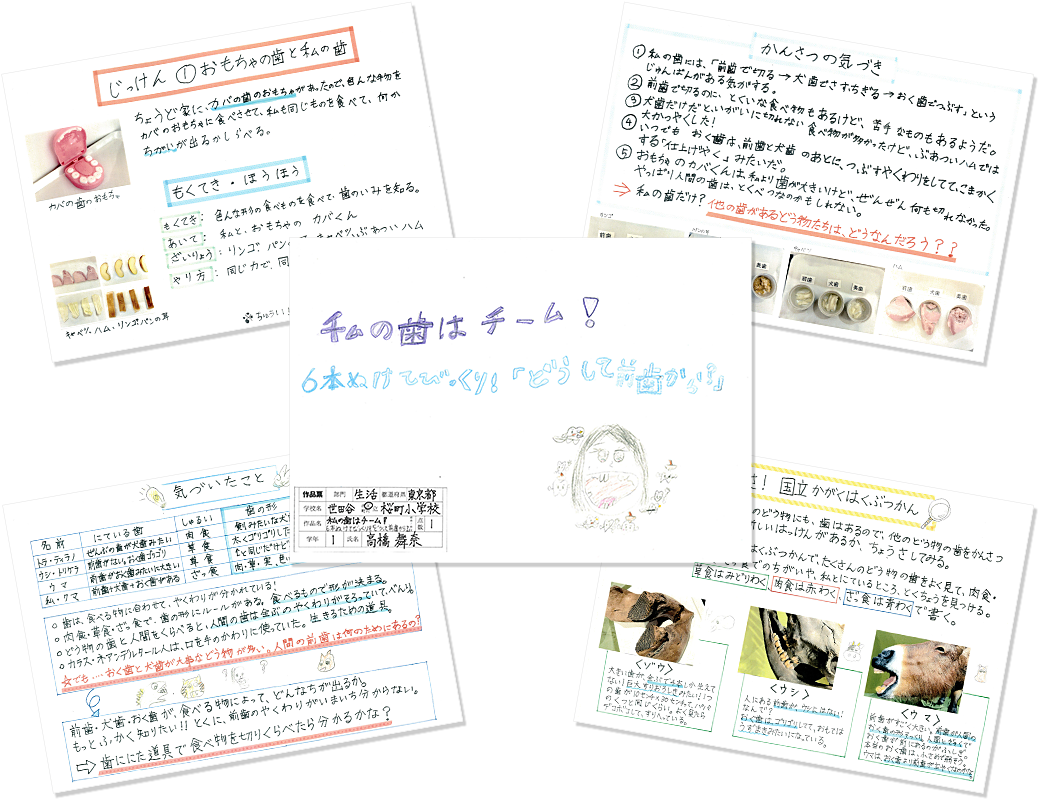 じっけん ① おもちゃの歯と私の歯
ちょうど家に、カバの歯のおもちゃがあったので、色んな食べ物を
カバのおもちゃに食べさせて、私も同じものを食べて、何か
ちがいが出るかしらべる。
カバの歯のおもちゃ
もくてき・ほうほう
もくてき: 色んな形の食べものを食べて、歯のいみを知る。
あいて: 私と、おもちゃの カバくん
ざいりょう: リンゴ、パンの キャベツ、ぶあつい ハム
やり方: 同じ力で、同
キャベツ、ハム、リンゴ、パンの耳
かんさつの気づき
① 私の歯には、「前歯で切る→犬歯でさす、ちぎる→おく歯でつぶす」という
じゅんばんがある気がする。
② 前歯で切るのに、とくいな食べ物もあるけど、苦手なものもあるようだ。
③ 犬歯だけだと、いがいに切れない食べ物が多かったけど、ぶあついハムでは
大かつやくした!
④ いつでも おく歯は、前歯と犬歯のあとに、つぶすやくわりをしてて、こまかく
する「仕上げやく」みたいだ。
⑤ おもちゃのカバくんは私より歯が大きいけど、ぜんぜん何も切れなかった。
やっぱり人間の歯は、とくべつなのかもしれない。
⇒ 私の歯だけ?他の歯があるどう物たちは、どうなんだろう??
リンゴ
前歯
パンの耳
奥歯
前歯
犬歯
奥歯
ハム
前歯
犬歯
奥歯
私の歯はチーム!
6本ぬけてびっくり!「どうして前歯から?」
作品票
部門
生活
都道府県
東京都
学校名
世田谷
桜町小学校
作品名
私の歯はチーム!
点数
1
学年
1
氏名
高橋 舞奈
気づいたこと
名前
にている歯
しゅるい
歯の形
トラ・ティラノ
ぜんぶの歯が犬歯みたい
肉食
ウシ・トリケラ
前歯がない。おく歯ゴリゴリ
草食
ウマ
前歯がおく歯みたいに大きい
草食
私・クマ
前歯+犬歯+おく歯がある
ざっ食
○ 歯は、食べる物に合わせて、やくわりが分かれている!
○ 肉食・草食・ざっ食で、歯の形にルールがある。食べるもので形が決まる。
○ どう物の歯と人間をくらべると、人間の歯は全ぶのやくわりがそろっていて、べんり。
○ カラス・ネアンデルタール人は、口を手のかわりに使っていた。生きるための道具。
☆でも…おく歯と犬歯が大事などう物が多い。人間の前歯は何のためにあるの?
前歯・犬歯・おく歯が、食べる物によって、どんなちがいが出るか。
もっとふかく知りたい!!とくに、前歯のやくわりがいまいち分からない。
⇨ 歯ににた道具で食べ物を切りくらべたら分かるかな?
さ! 国立かがくはくぶつかん
のどう物にも、歯はあるので、他のどう物の歯をかんさつ
新しいはっけんがあるか、ちょうさしてみる。
はくぶつかんで、たくさんのどう物の歯をよく見て、肉食・
ざっ食でのちがいや、私とにているところ、とくちょうを見つける。
草食はみどりわく、肉食は赤わく、ざっ食は青わくで書く。
<ゾウ>
<ウシ>
<ウマ>